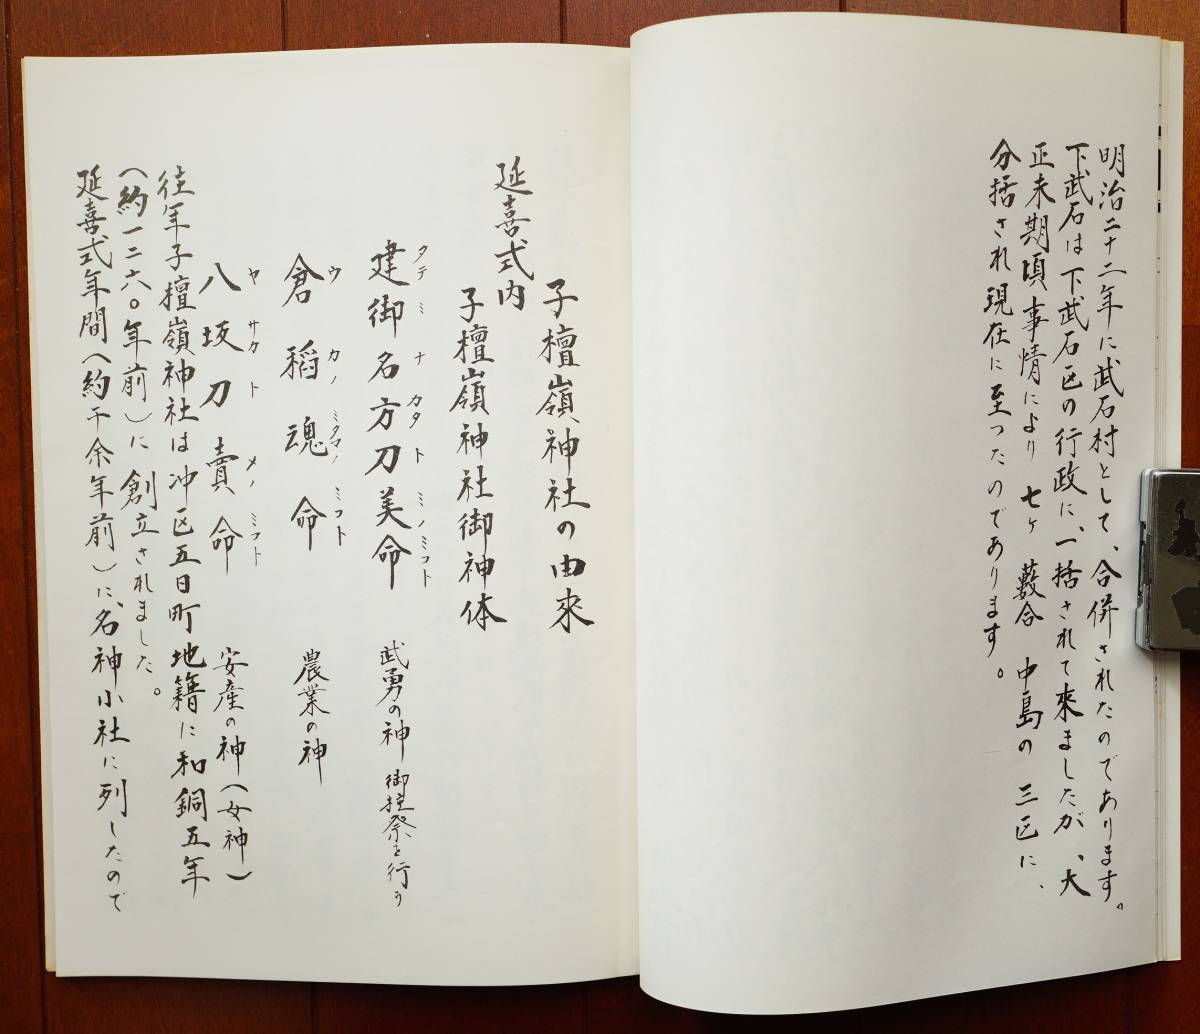 明治二十二年に武石村として、合併されたのであります。
下武石は下武石区の行政に、一括されて來ましたが、大
正末期頃事情により 七ヶ 藪合 中島の 三区に、
分括され現在に至ったのであります。
子檀嶺神社の由來
延喜式内
子檀嶺神社御神体
建御名方刀美命 武勇の神 御柱祭を行う
タテミナカタトミノミコト
倉稻魂命 農業の神
ウカノミタマノミコト
八坂刀賣命 安産の神(女神)
ヤサカトメノミコト
往年子檀嶺神社は冲区五日町地籍に和銅五年
(約一二六〇年前)に創立されました。
延喜式年間(約千余年前)に、名神小社に列したので